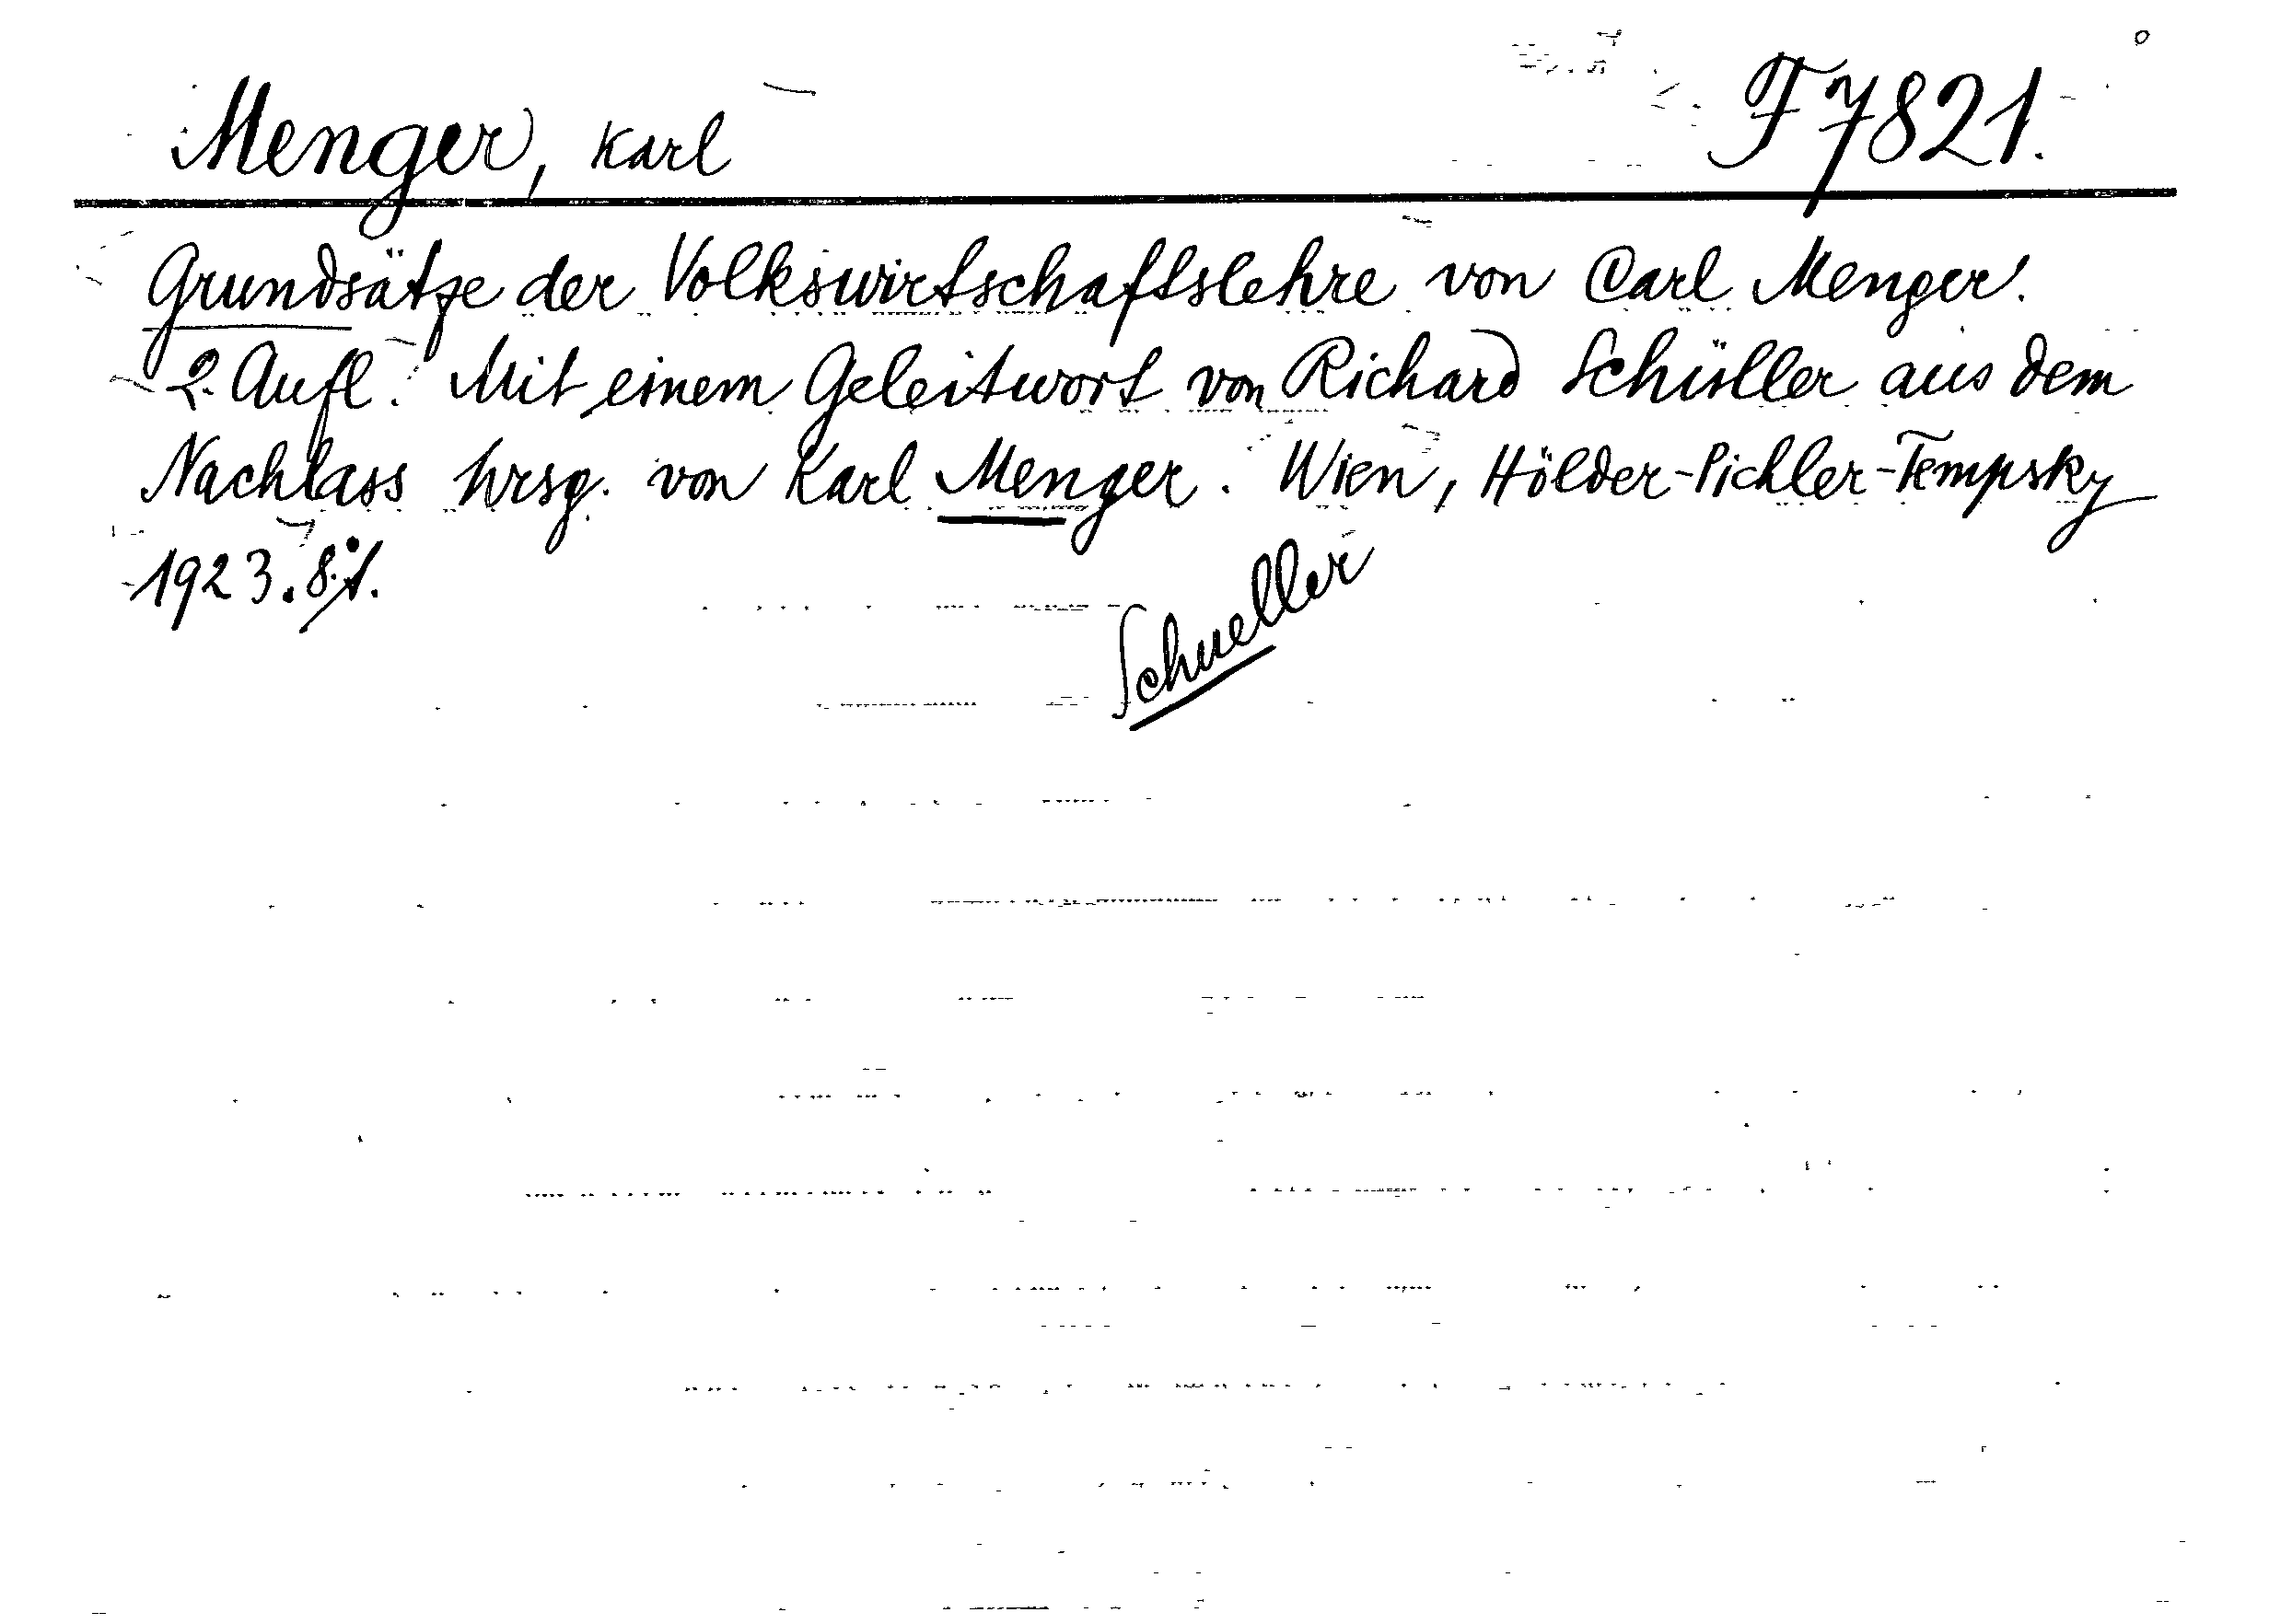 Menger, Karl F 7821.
Grundsätze der Volkswirtschaftslehre von Carl Menger.
2. Aufl. Mit einem Geleitwort von Richard Schüller aus dem
Nachlass hrsg. von Karl Menger. Wien, Hölder-Pichler-Tempsky
1923. 8°.
Schueller